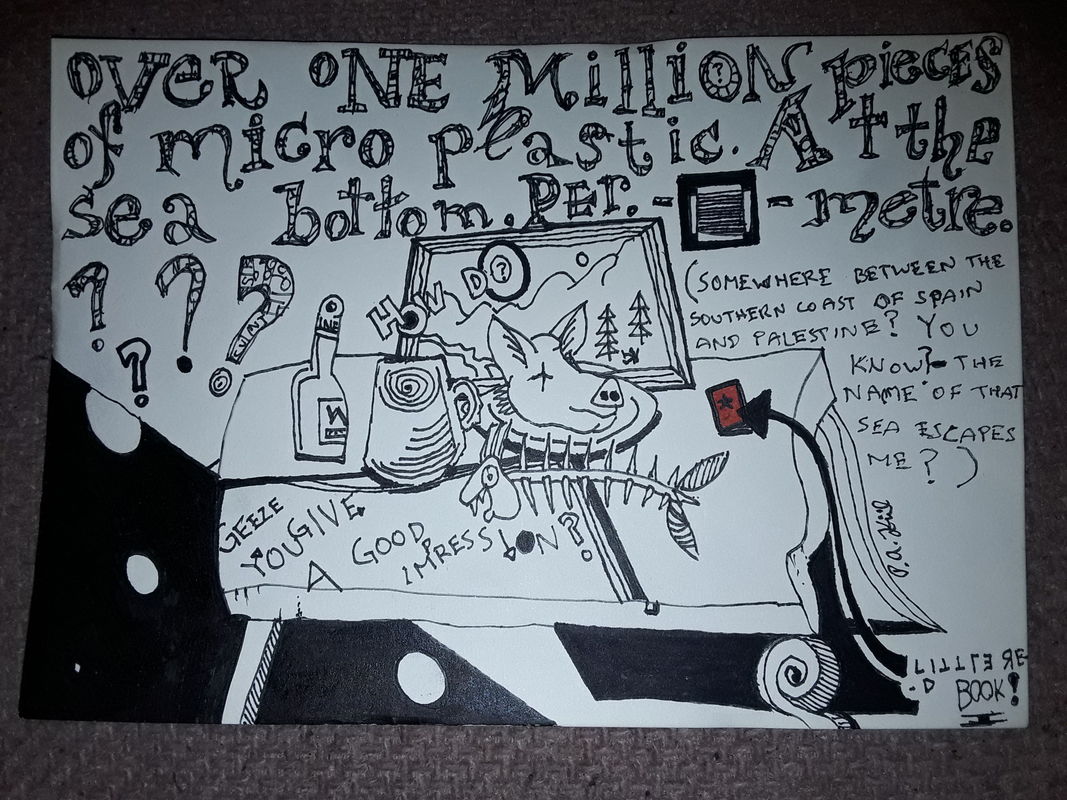 over oNE MillioN pieces
of micro plastic. At the
sea bottom. PEr. - - metre.
? ? ?
?
HOW DO ?
(SOMEWHERE BETWEEN THE
SOUTHERN COAST OF SPAIN
AND PALESTINE? YOU
KNOW? THE
NAME OF THAT
SEA ESCAPES
ME?)
GEEZE
YOU GIVE
A GOOD
IMPRESSION?
LITTLE RE-
-D BOOK!